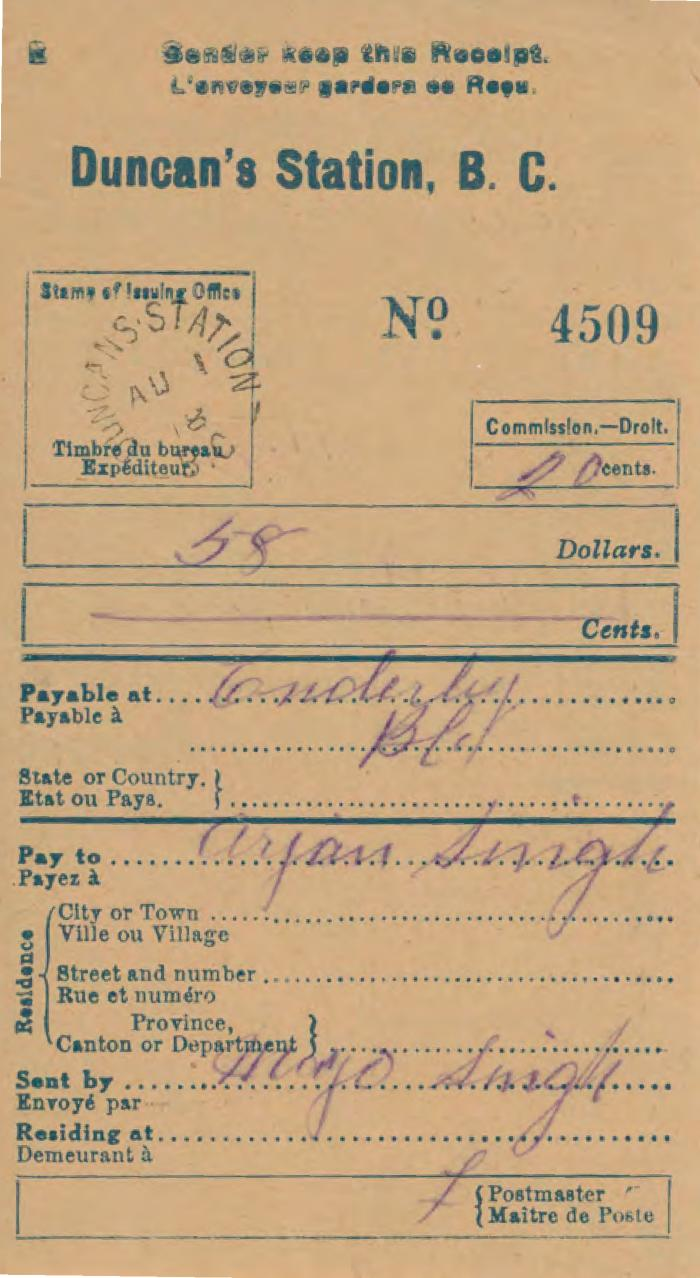 Sender keep this Receipt.
L'envoyeur gardera ce Reçu.
Duncan's Station, B. C.
Stamp of Issuing Office
DUNCANS·STATION
AU 1
B.C.
Timbre du bureau
Expéditeur.
Nº 4509
Commission.—Droit.
20 cents.
58 Dollars.
Cents.
Payable at Enderby
Payable à
State or Country.
Etat ou Pays.
Pay to Arjan Singh
Payez à
Residence
City or Town
Ville ou Village
Street and number
Rue et numéro
Province,
Canton or Department
Sent by Mayo Singh
Envoyé par
Residing at
Demeurant à
Postmaster
Maître de Poste